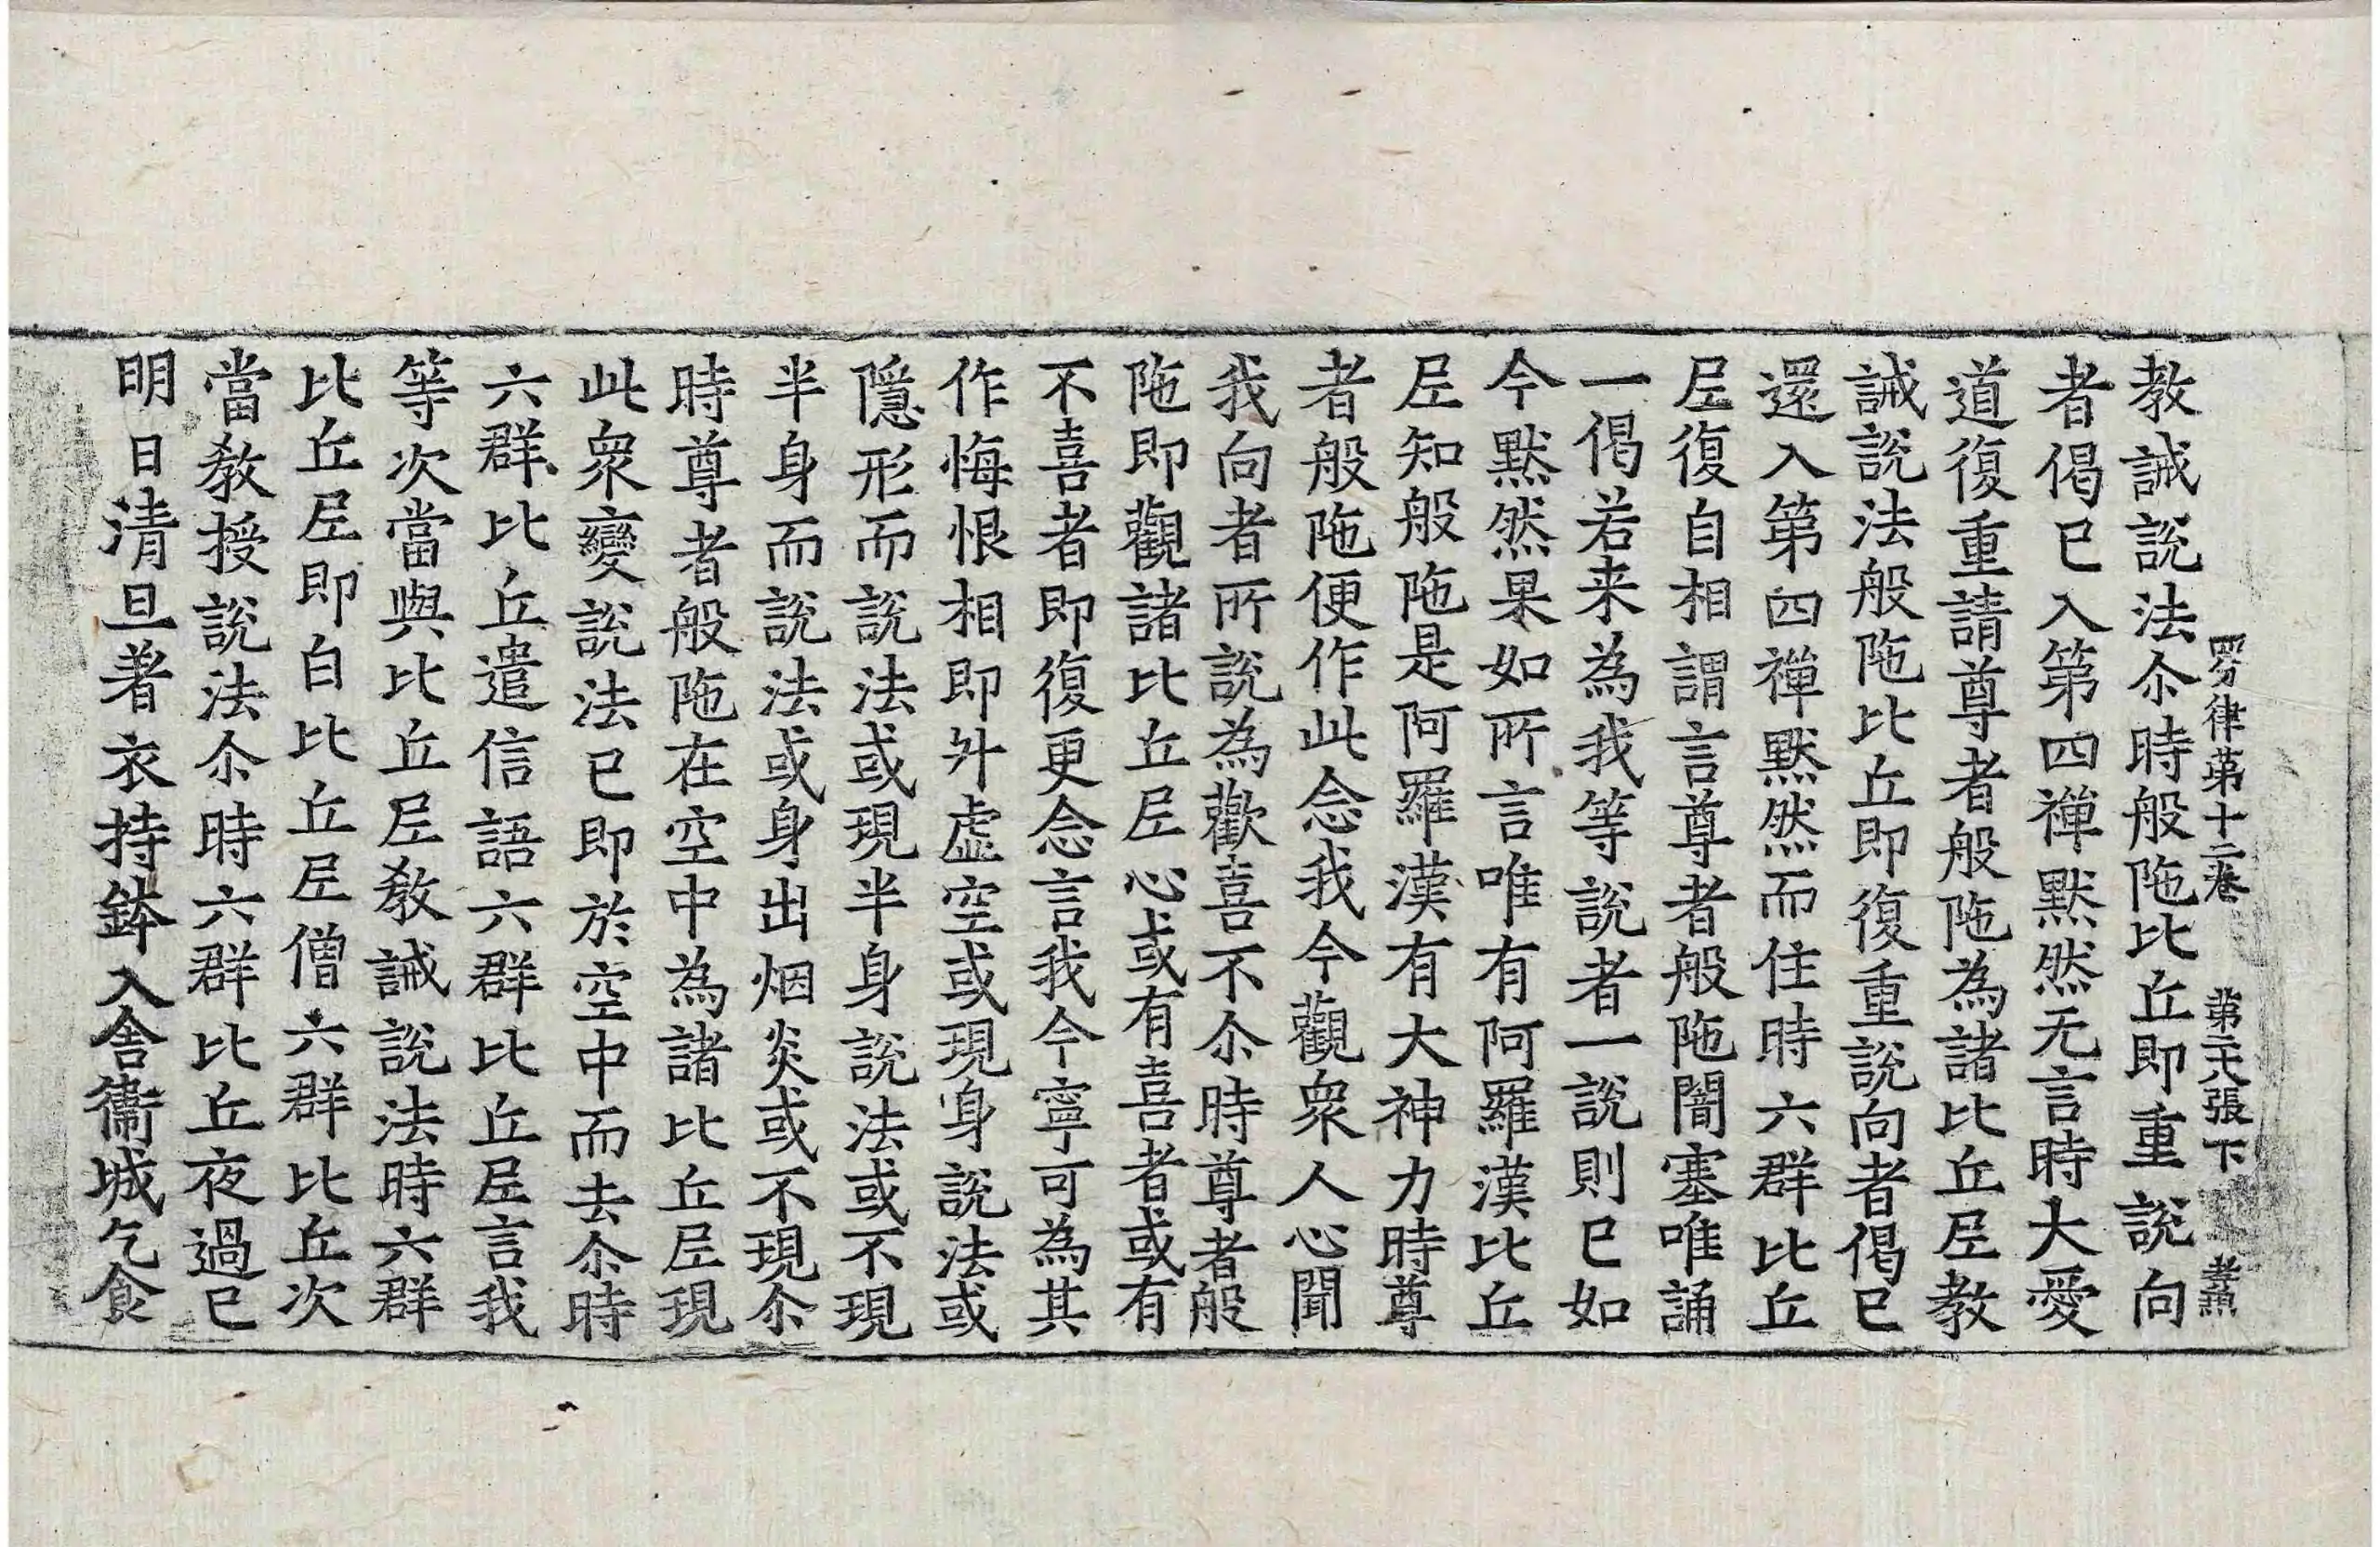 四分律苐十二卷 張下
教誡說法尒時般陁比丘即重說向
者偈已入第四禪默然无言時大愛
道復重請尊者般陁為諸比丘尼教
誡說法般陁比丘即復重說向者偈已
還入第四禪默然而住時六群比丘
尼復自相謂言尊者般陁闇塞唯誦
一偈若来為我等說者一說則已如
今默然果如所言唯有阿羅漢比丘
尼知般陁是阿羅漢有大神力時尊
者般陁便作此念我今觀衆人心聞
我向者所說為歡喜不尒時尊者般
陁即觀諸比丘尼心或有喜者或有
不喜者即復更念言我今寧可為其
作悔恨相即升虛空或現身說法或
隱形而說法或現半身說法或不現
半身而說法或身出烟炎或不現尒
時尊者般陁在空中為諸比丘尼現
此衆變說法已即於空中而去尒時
六群比丘遣信語六群比丘尼言我
等次當與比丘尼教誡說法時六群
比丘尼即白比丘尼僧六群比丘次
當教授說法尒時六群比丘夜過已
明日清旦著衣持鉢入舍衛城乞食